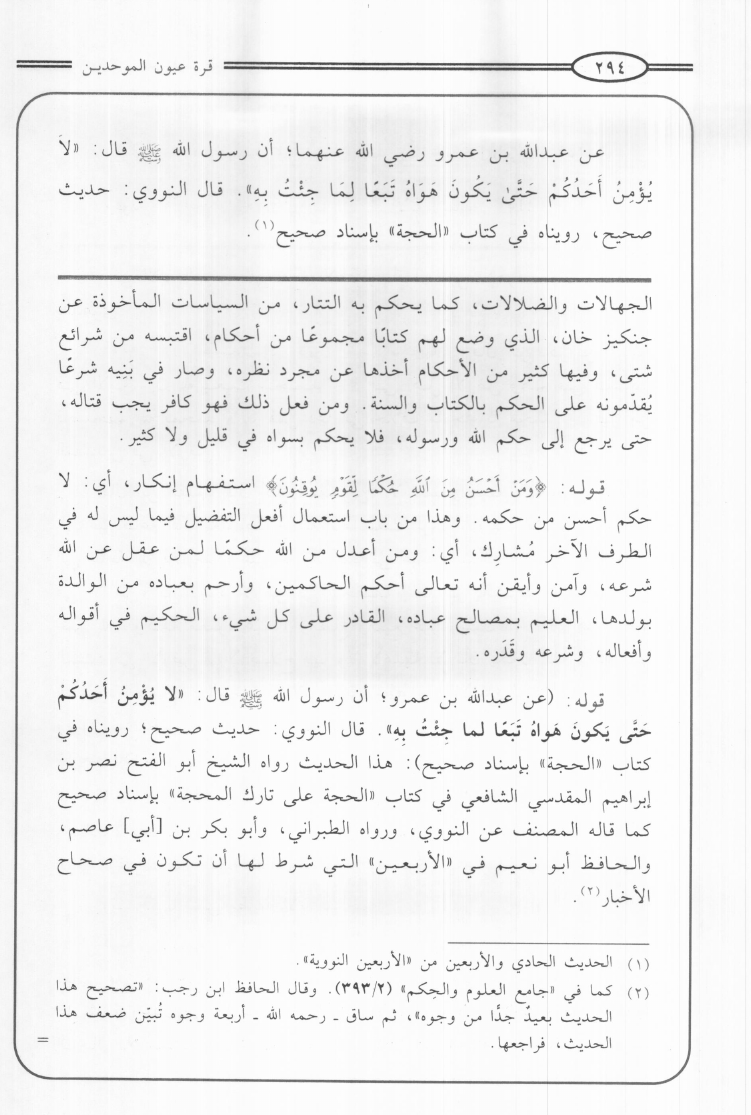 ٢٩٤
قرة عيون الموحدين
عن عبدالله بن عمرو رضي الله عنهما؛ أن رسول الله ﷺ قال: «لاَ
يُؤْمِنُ أَحَدُكُمْ حَتَّىٰ يَكُونَ هَوَاهُ تَبَعًا لِمَا جِئْتُ بِهِ». قال النووي: حديث
صحيح، رويناه في كتاب «الحجة» بإسناد صحيح(١).
الجهالات والضلالات، كما يحكم به التتار، من السياسات المأخوذة عن
جنكيز خان، الذي وضع لهم كتابًا مجموعًا من أحكام، اقتبسه من شرائع
شتى، وفيها كثير من الأحكام أخذها عن مجرد نظره، وصار في بَنِيه شرعًا
يُقدّمونه على الحكم بالكتاب والسنة. ومن فعل ذلك فهو كافر يجب قتاله،
حتى يرجع إلى حكم الله ورسوله، فلا يحكم بسواه في قليل ولا كثير.
قوله: ﴿وَمَنْ أَحْسَنُ مِنَ ٱللَّهِ حُكْمًا لِّقَوْمٍ يُوقِنُونَ﴾ استفهام إنكار، أي: لا
حكم أحسن من حكمه. وهذا من باب استعمال أفعل التفضيل فيما ليس له في
الطرف الآخر مُشارِك، أي: ومن أعدل من الله حكمًا لمن عقل عن الله
شرعه، وآمن وأيقن أنه تعالى أحكم الحاكمين، وأرحم بعباده من الوالدة
بولدها، العليم بمصالح عباده، القادر على كل شيء، الحكيم في أقواله
وأفعاله، وشرعه وقَدَره.
قوله: (عن عبدالله بن عمرو؛ أن رسول الله ﷺ قال: «لا يُؤْمِنُ أَحَدُكُمْ
حَتَّى يَكونَ هَواهُ تَبَعًا لما جِئْتُ بِهِ». قال النووي: حديث صحيح؛ رويناه في
كتاب «الحجة» بإسناد صحيح): هذا الحديث رواه الشيخ أبو الفتح نصر بن
إبراهيم المقدسي الشافعي في كتاب «الحجة على تارك المحجة» بإسناد صحيح
كما قاله المصنف عن النووي، ورواه الطبراني، وأبو بكر بن [أبي] عاصم،
والحافظ أبو نعيم في «الأربعين» التي شرط لها أن تكون في صحاح
الأخبار(٢).
(١) الحديث الحادي والأربعين من «الأربعين النووية».
(٢) كما في «جامع العلوم والحكم» (٣٩٣/٢). وقال الحافظ ابن رجب: «تصحيح هذا
الحديث بعيدٌ جدًّا من وجوه»، ثم ساق ـ رحمه الله ـ أربعة وجوه تُبيّن ضعف هذا
الحديث، فراجعها.
=